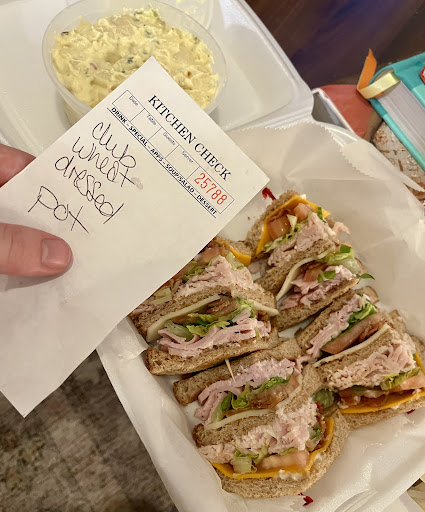 KITCHEN CHECK
Date Table Guests Server
25788
DRINK - SPECIAL - APPS - SOUP/SALAD - DESSERT
club
wheat
dressed
pot